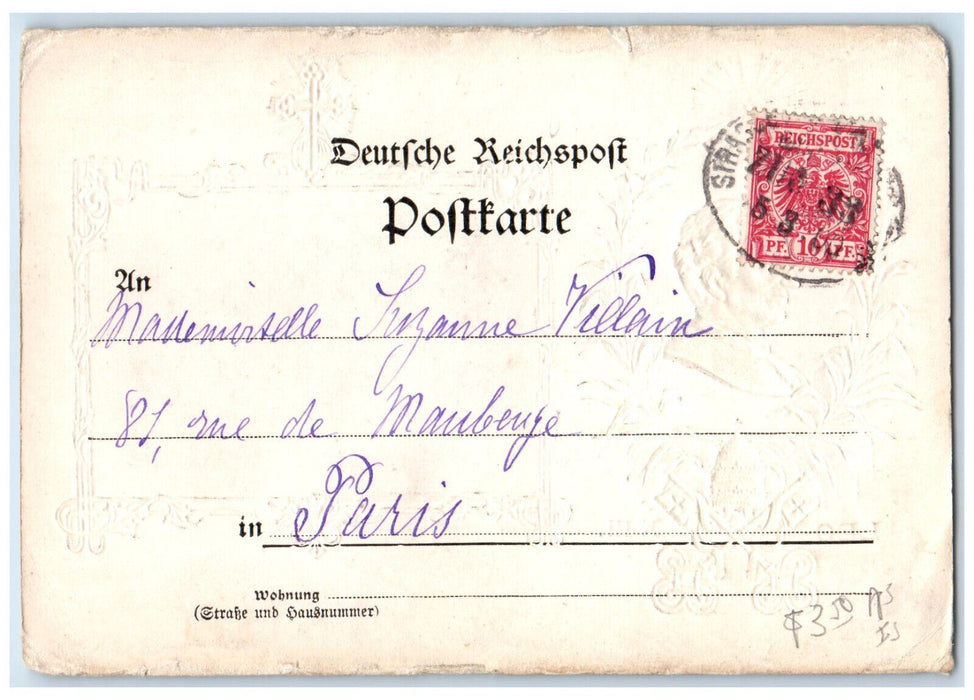 Deutsche Reichspost
REICHSPOST
Postkarte
PF. 10 PF.
An
Mademoiselle Suzanne Villain
81, rue de Maubeuge
in Paris
Wohnung
(Straße und Hausnummer)
350